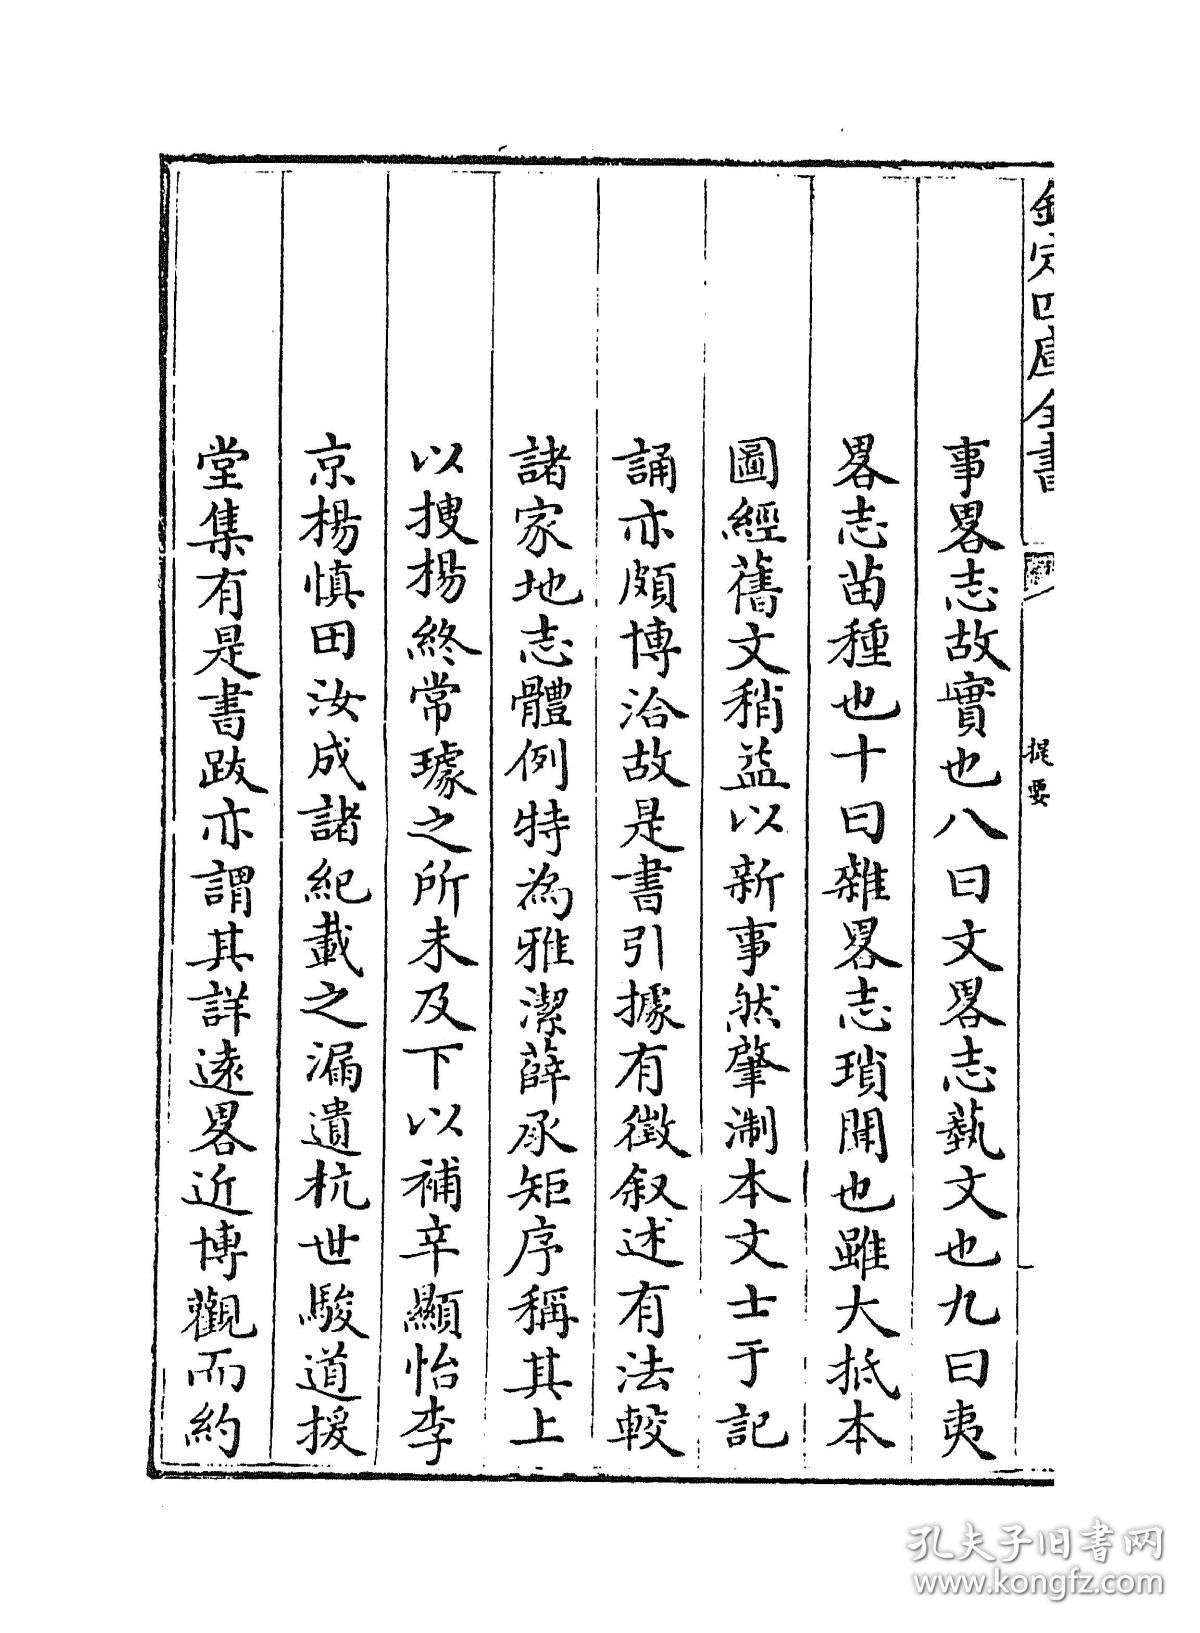 欽定四庫全書
提要
事畧志故實也八曰文畧志藝文也九曰夷
畧志苗種也十曰雜畧志瑣聞也雖大抵本
圖經舊文稍益以新事然肇淛本文士于記
誦亦頗博洽故是書引據有徵叙述有法較
諸家地志體例特為雅潔薛承矩序稱其上
以搜楊終常璩之所未及下以補辛顯怡李
京楊慎田汝成諸紀載之漏遺杭世駿道援
堂集有是書跋亦謂其詳遠畧近博觀而約
孔夫子旧书网
www.kongfz.com